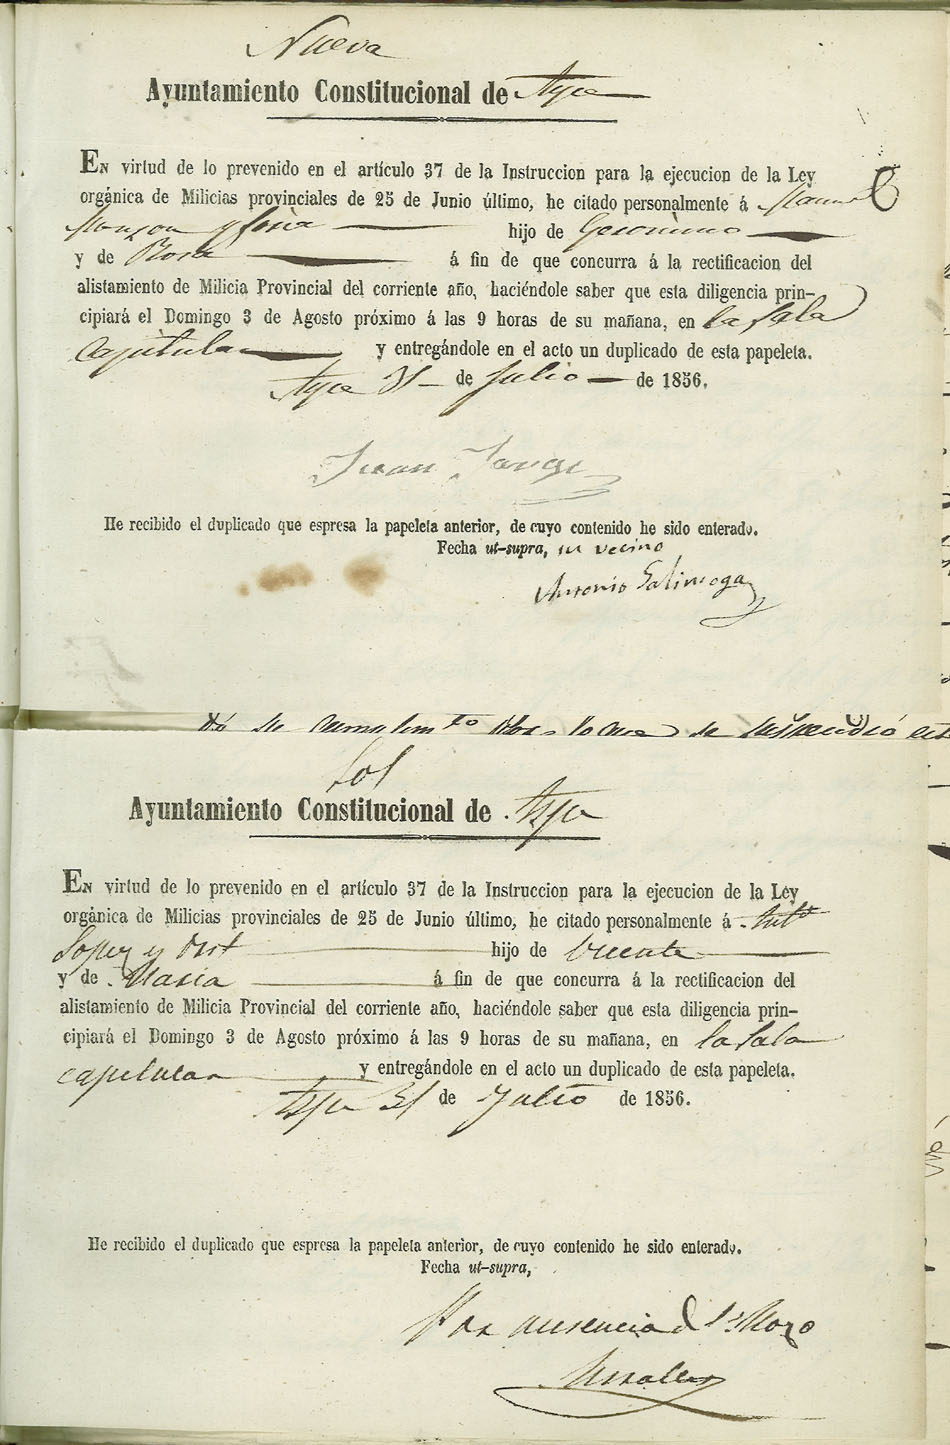 Nueva
Ayuntamiento Constitucional de Aspe
EN virtud de lo prevenido en el artículo 37 de la Instruccion para la ejecucion de la Ley
orgánica de Milicias provinciales de 25 de Junio último, he citado personalmente á Manuel
hijo de Geronimo
y de Rosa á fin de que concurra á la rectificacion del
alistamiento de Milicia Provincial del corriente año, haciéndole saber que esta diligencia prin-
cipiará el Domingo 3 de Agosto próximo á las 9 horas de su mañana, en la Sala
Capitular y entregándole en el acto un duplicado de esta papeleta.
Aspe 31 de Julio de 1856.
Juan
He recibido el duplicado que espresa la papeleta anterior, de cuyo contenido he sido enterado.
Fecha ut-supra, su vecino
Antonio
se suspendió
Sol
Ayuntamiento Constitucional de Aspe
EN virtud de lo prevenido en el artículo 37 de la Instruccion para la ejecucion de la Ley
orgánica de Milicias provinciales de 25 de Junio último, he citado personalmente á Antº
Lopez y hijo de Vicente
y de Maria á fin de que concurra á la rectificacion del
alistamiento de Milicia Provincial del corriente año, haciéndole saber que esta diligencia prin-
cipiará el Domingo 3 de Agosto próximo á las 9 horas de su mañana, en la Sala
capitular y entregándole en el acto un duplicado de esta papeleta.
Aspe 31 de Julio de 1856.
He recibido el duplicado que espresa la papeleta anterior, de cuyo contenido he sido enterado.
Fecha ut-supra,
Por ausencia d Mozo